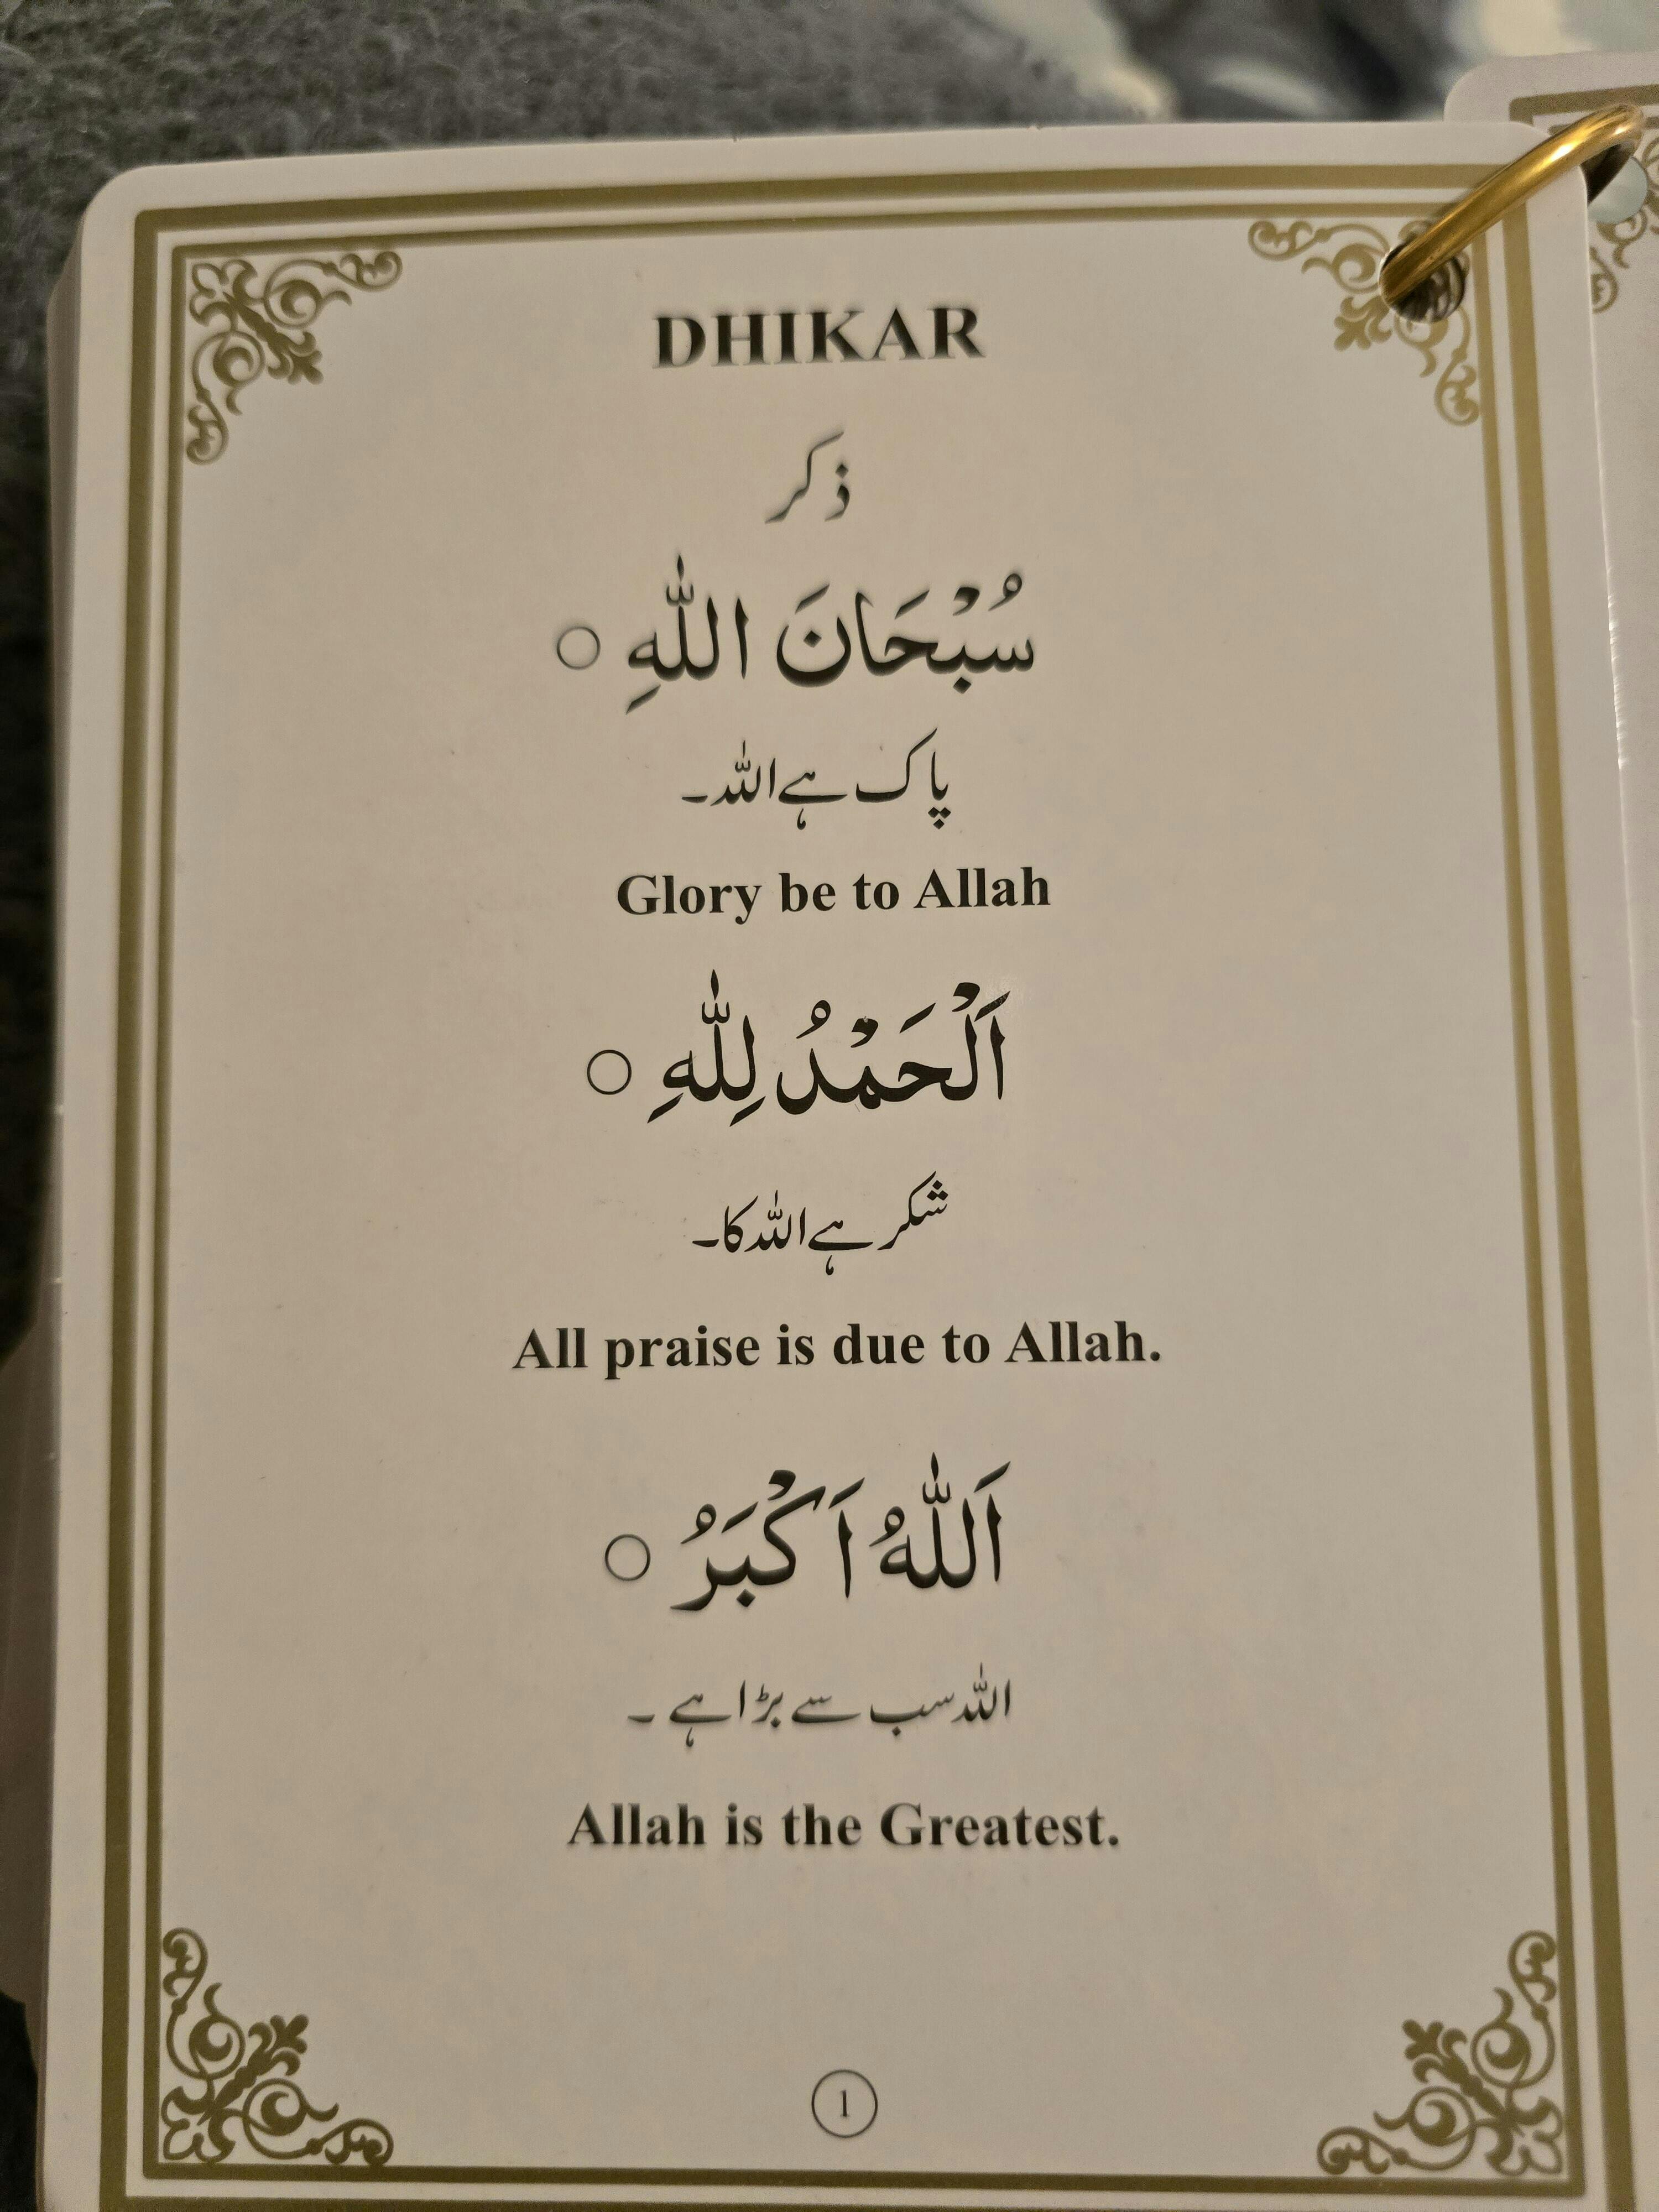 DHIKAR
ذکر
سُبْحَانَ اللّٰهِ ○
پاک ہے اللہ۔
Glory be to Allah
اَلْحَمْدُ لِلّٰهِ ○
شکر ہے اللہ کا۔
All praise is due to Allah.
اَللّٰهُ اَكْبَرُ ○
اللہ سب سے بڑا ہے ۔
Allah is the Greatest.
1